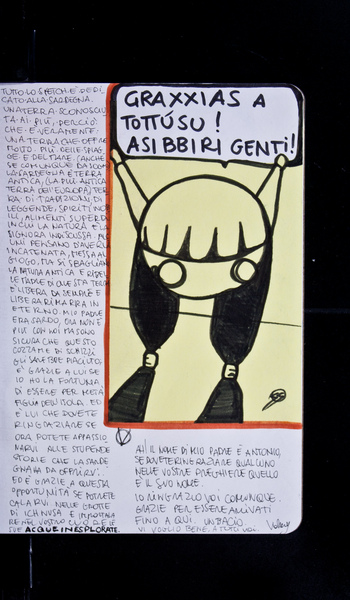 TUTTO LO SKETCH È DEDI
CATO ALLA SARDEGNA.
UNA TERRA SCONOSCIU
TA AI PIÙ, PERCIÒ
CHE È VERAMENTE.
UNA TERRA CHE OFFRE
MOLTO PIÙ DELLE SPIAG
GE E DEL MARE, (ANCHE
SE COMUNQUE DA SOGNO)
LA SARDEGNA È TERRA
ANTICA, (LA PIÙ ANTICA
TERRA DELL'EUROPA), TER
RA DI TRADIZIONI, DI
LEGGENDE, SPIRITI NOB
ILI, ALIMENTI SUPERBI
IN CUI LA NATURA È LA
SIGNORA INDISCUSSA. AL
UNI PENSANO D'AVERLA
INCATENATA, MESSA AL
GIOGO, MA SI SBAGLIANO
LA NATURA ANTICA E RIBEL
LE MADRE DI QUESTA TERRA
È LIBERA DA SEMPRE E
LIBERA RIMARRÀ IN
ETERNO. MIO PADRE
ERA SARDO, ORA NON È
PIÙ CON NOI MA SONO
SICURA CHE QUESTO
DI SCHIZZI
GLI SAREBBE PIACIUTO.
È GRAZIE A LUI SE
IO HO LA FORTUNA
DI ESSERE PER METÀ
FIGLIA DELL'ISOLA. ED
È LUI CHE DOVETE
RINGRAZIARE SE
ORA POTETE APPASSIO
NARVI ALLE STUPENDE
STORIE CHE LA SARDE
GNA HA DA OFFRIRVI.
ED È GRAZIE A QUESTA
OPPORTUNITÀ SE POTRETE
CALARVI NELLE GROTTE
DI ICHNUSA E
RE NEL VOSTRO CUORE LE
SUE ACQUE INESPLORATE.
GRAXXIAS A
TOTTÚSU!
ASI BBIRI GENTI!
AH! IL NOME DI MIO PADRE È ANTONIO,
SE DOVETE RINGRAZIARE QUALCUNO
NELLE VOSTRE PREGHIERE QUELLO
È IL SUO NOME.
IO RINGRAZIO VOI COMUNQUE.
GRAZIE PER ESSERE ARRIVATI
FINO A QUI. UN BACIO.
VI VOGLIO BENE, A TUTTI VOI.